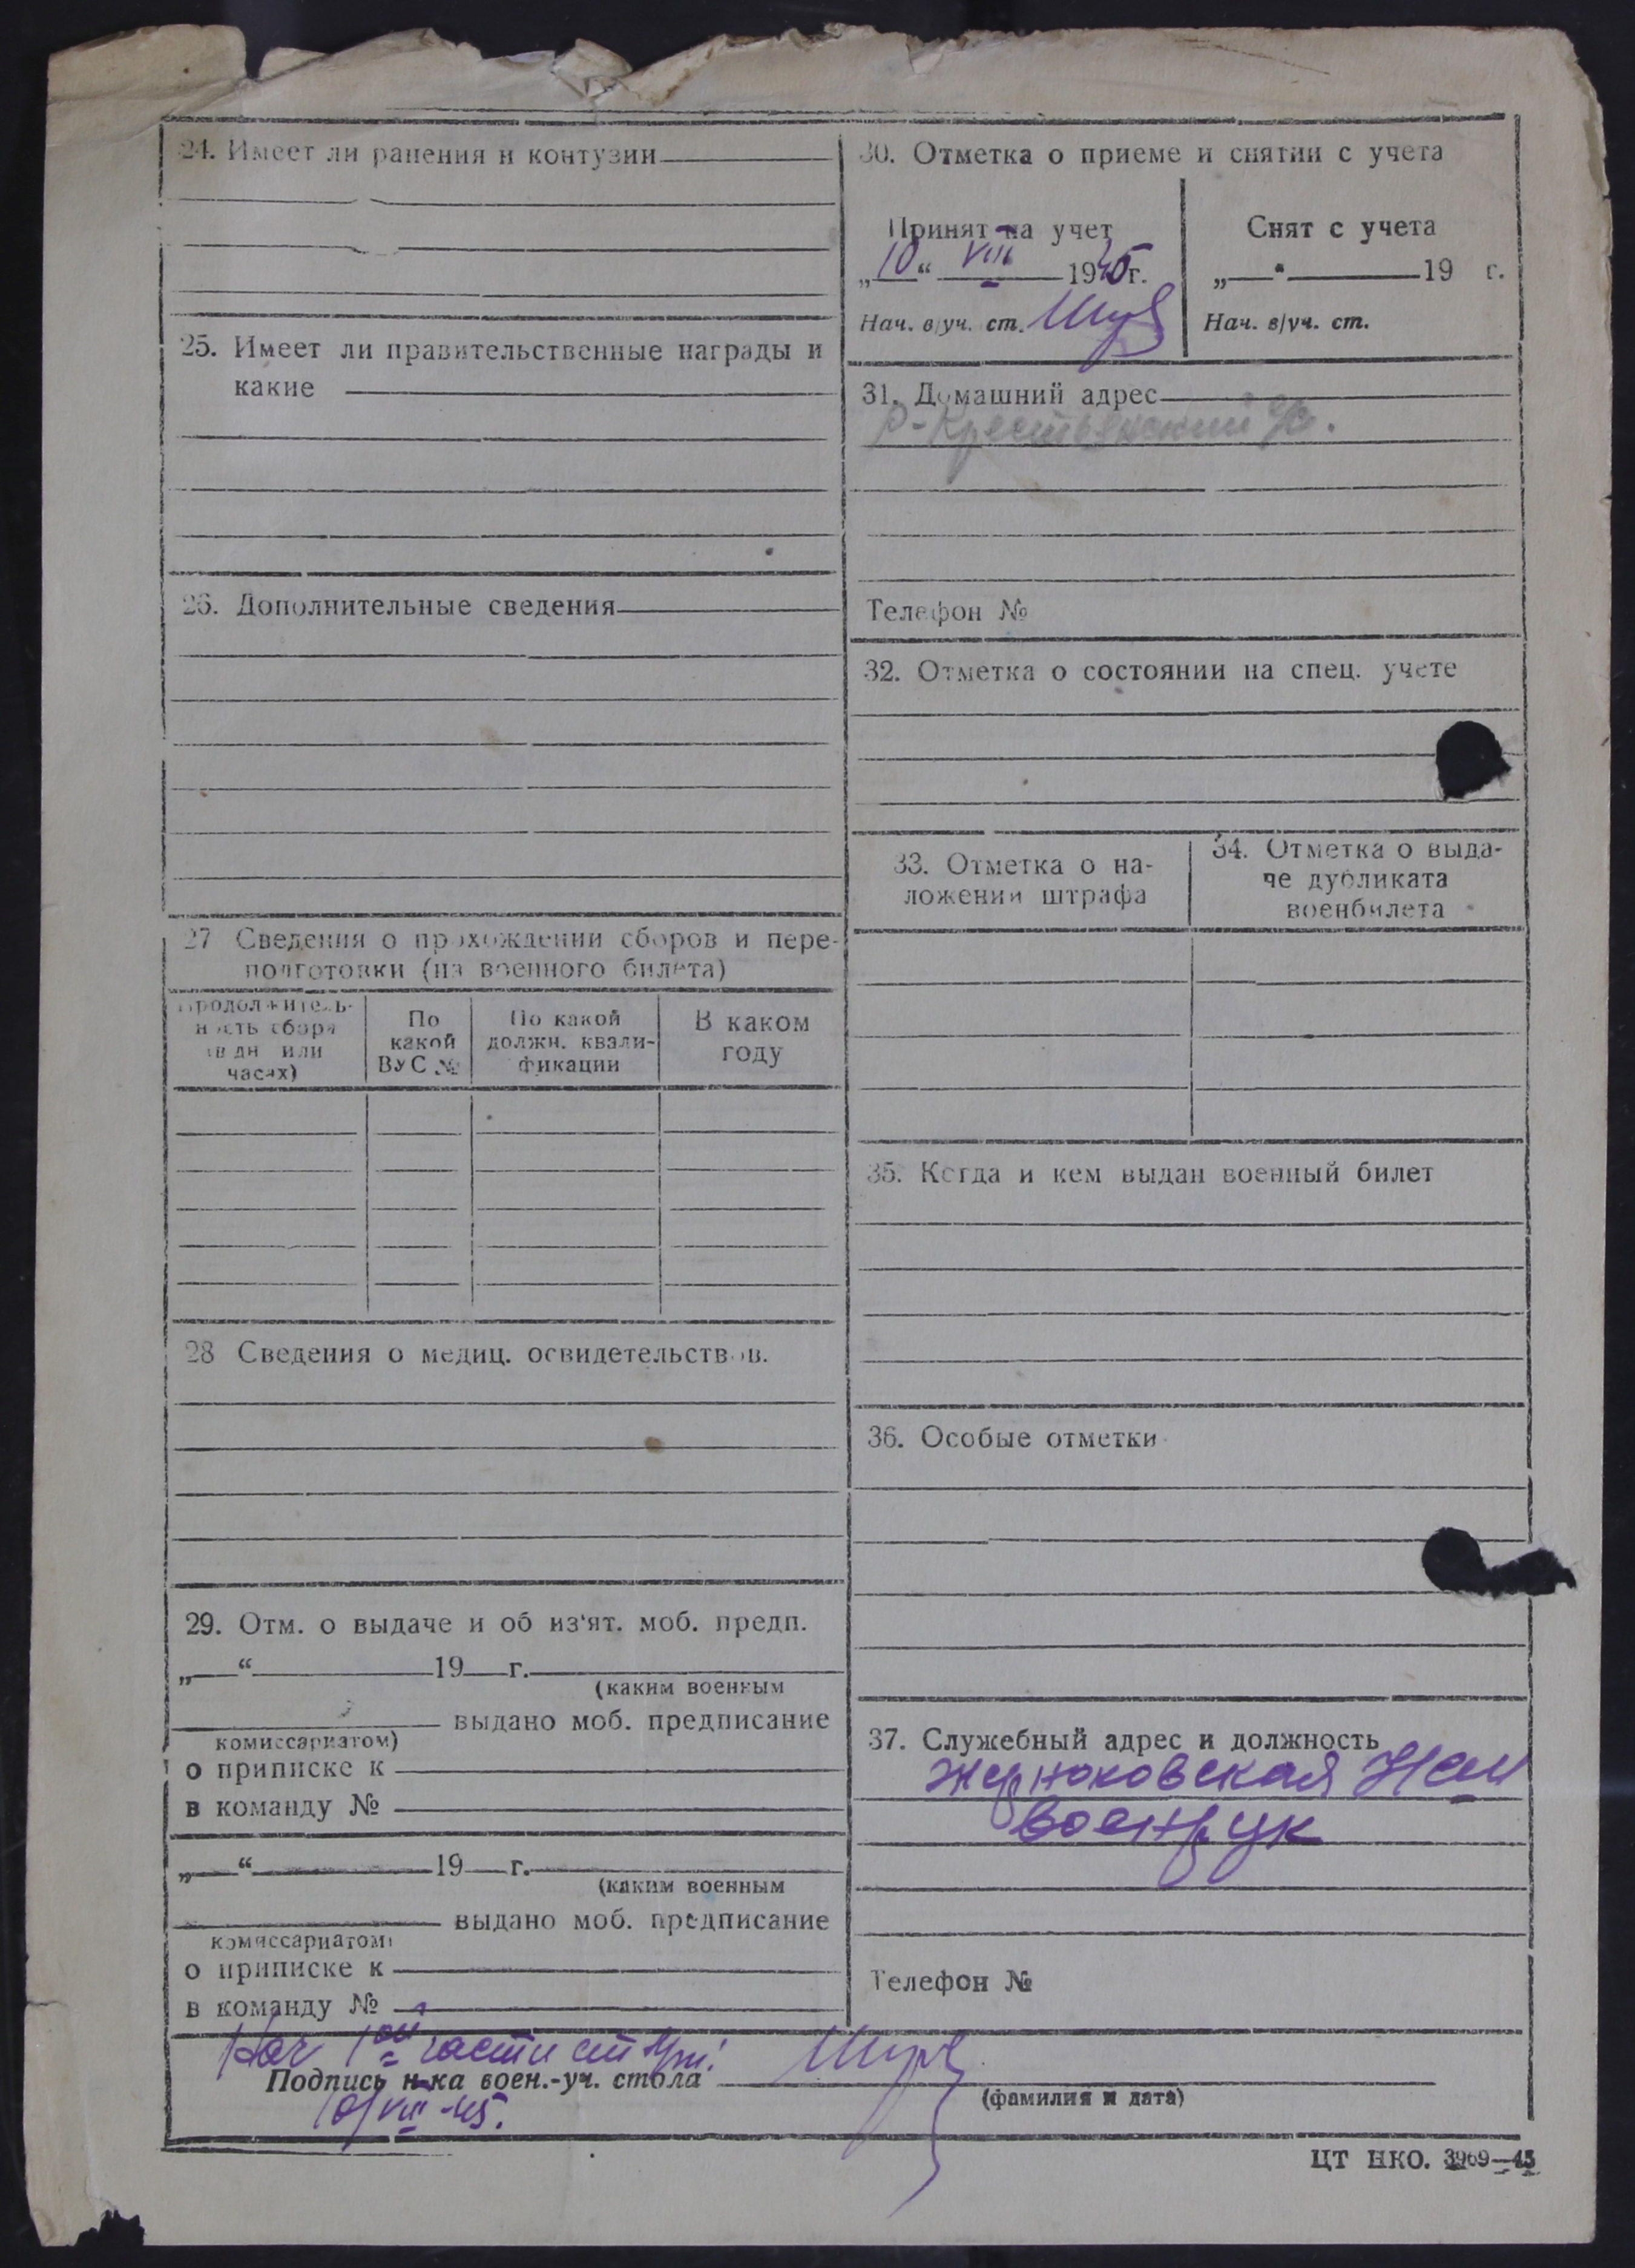 24. Имеет ли ранения и контузии
25. Имеет ли правительственные награды и
какие
26. Дополнительные сведения
27 Сведения о прохождении сборов и пере-
подготовки (из военного билета)
Продолжитель-
ность сбора
(в дн. или
часах)
По
какой
ВУС №
По какой
должн. квали-
фикации
В каком
году
28 Сведения о медиц. освидетельствов.
29. Отм. о выдаче и об из'ят. моб. предп.
„ “ 19 г.
(каким военным
выдано моб. предписание
комиссариатом)
о приписке к
в команду №
„ “ 19 г.
(каким военным
выдано моб. предписание
комиссариатом)
о приписке к
в команду №
30. Отметка о приеме и снятии с учета
Принят на учет
„10“ VIII 1945г.
Нач. в/уч. ст.
Снят с учета
„ “ 19 г.
Нач. в/уч. ст.
31. Домашний адрес
Р-Крестьянский
Телефон №
32. Отметка о состоянии на спец. учете
33. Отметка о на-
ложении штрафа
34. Отметка о выда-
че дубликата
военбилета
35. Когда и кем выдан военный билет
36. Особые отметки
37. Служебный адрес и должность
Жерноковская
Военрук
Телефон №
Нач 1ой части
Подпись н-ка воен.-уч. стола
(фамилия и дата)
10/VIII-45.
ЦТ НКО. 3969—45